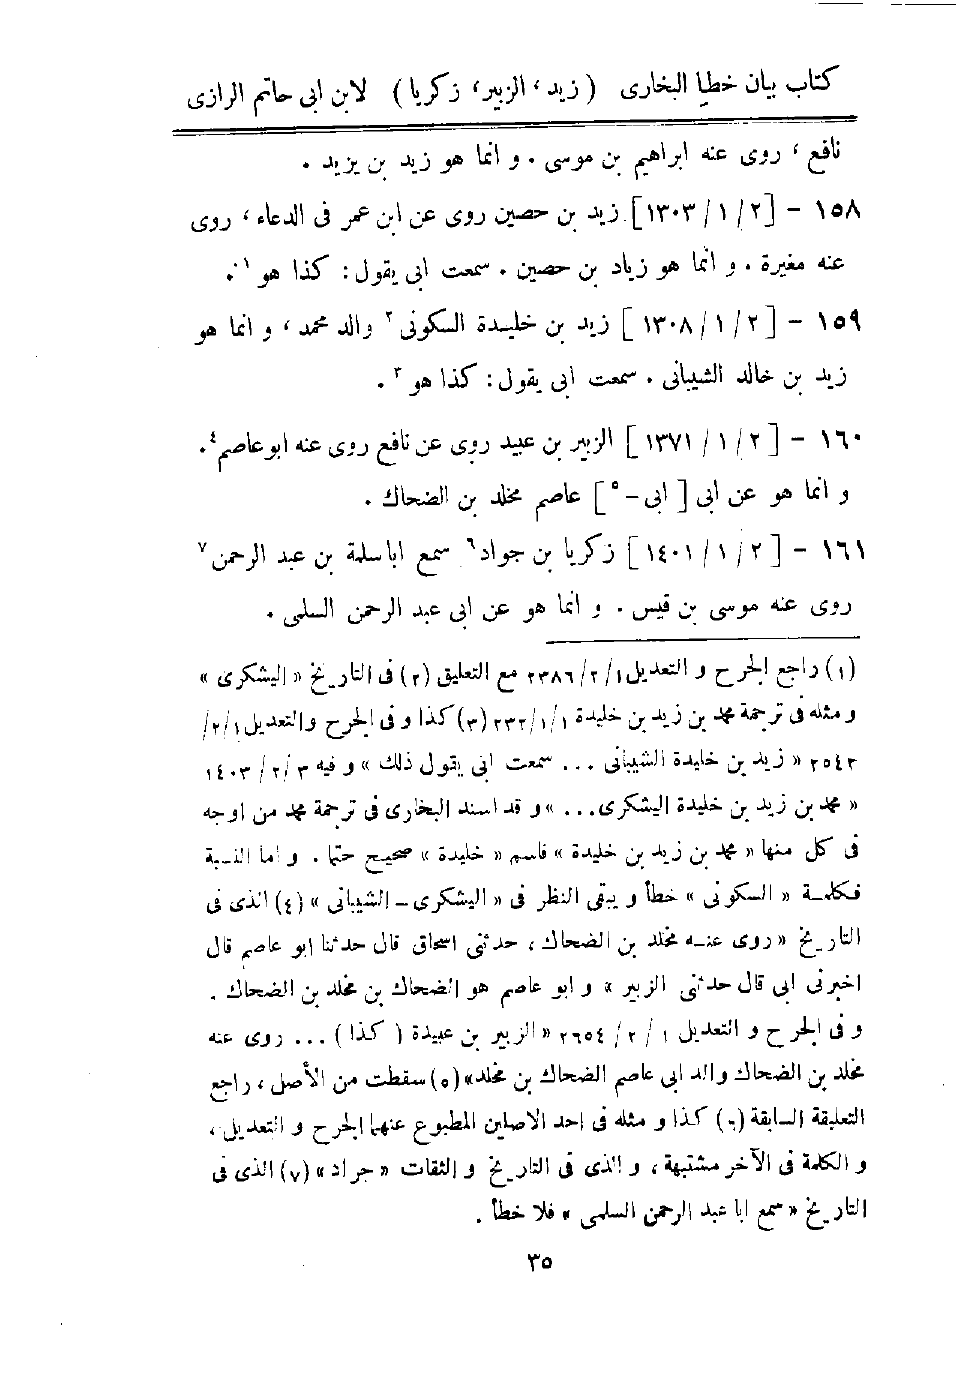 كتاب بيان خطإ البخارى (زيد، الزبير، زكريا) لابن ابى حاتم الرازى
نافع، روى عنه ابراهيم بن موسى. و انما هو زيد بن يزيد.
١٥٨ – [٢/١/١٣٠٣] زيد بن حصين روى عن ابن عمر فى الدعاء، روى
عنه مغيرة. و انما هو زياد بن حصين. سمعت ابى يقول: كذا هو ١.
١٥٩ – [٢/١/١٣٠٨] زيد بن خليدة السكونى ٢ والد محمد، و انما هو
زيد بن خالد الشيبانى. سمعت ابى يقول: كذا هو ٣.
١٦٠ – [٢/١/١٣٧١] الزبير بن عبيد روى عن نافع روى عنه ابو عاصم ٤.
و انما هو عن ابى [ابى-٥] عاصم مخلد بن الضحاك.
١٦١ – [٢/١/١٤٠١] زكريا بن جواد ٦ سمع ابا سلمة بن عبد الرحمن ٧
روى عنه موسى بن قيس. و انما هو عن ابى عبد الرحمن السلمى.
(١) راجع الجرح و التعديل ١/٢/٢٣٨٦ مع التعليق (٢) فى التاريخ «اليشكرى»
و مثله فى ترجمة محمد بن زيد بن خليدة ١/١/٢٣٢ (٣) كذا و فى الجرح والتعديل ١/٢/
٢٥٤٢ «زيد بن خليدة الشيبانى ... سمعت ابى يقول ذلك» و فيه ٣/٢/١٤٠٣
«محمد بن زيد بن خليدة اليشكرى...» و قد اسند البخارى فى ترجمة محمد من اوجه
فى كل منها «محمد بن زيد بن خليدة» فاسم «خليدة» صحيح حتما. و اما النسبة
فكلمة «السكونى» خطأ و يبقى النظر فى «اليشكرى - الشيبانى» (٤) الذى فى
التاريخ «روى عنه مخلد بن الضحاك، حدثنى اسحاق قال حدثنا ابو عاصم قال
اخبرنى ابى قال حدثنى الزبير» و ابو عاصم هو الضحاك بن مخلد بن الضحاك.
و فى الجرح و التعديل ١/٢/٢٦٥٤ «الزبير بن عبيدة (كذا) ... روى عنه
مخلد بن الضحاك والد ابى عاصم الضحاك بن مخلد» (٥) سقطت من الأصل، راجع
التعليقة السابقة (٦) كذا و مثله فى احد الاصلين المطبوع عنهما الجرح و التعديل،
و الكلمة فى الآخر مشتبهة، و الذى فى التاريخ و الثقات «جراد» (٧) الذى فى
التاريخ «سمع ابا عبد الرحمن السلمى» فلا خطأ.
٣٥